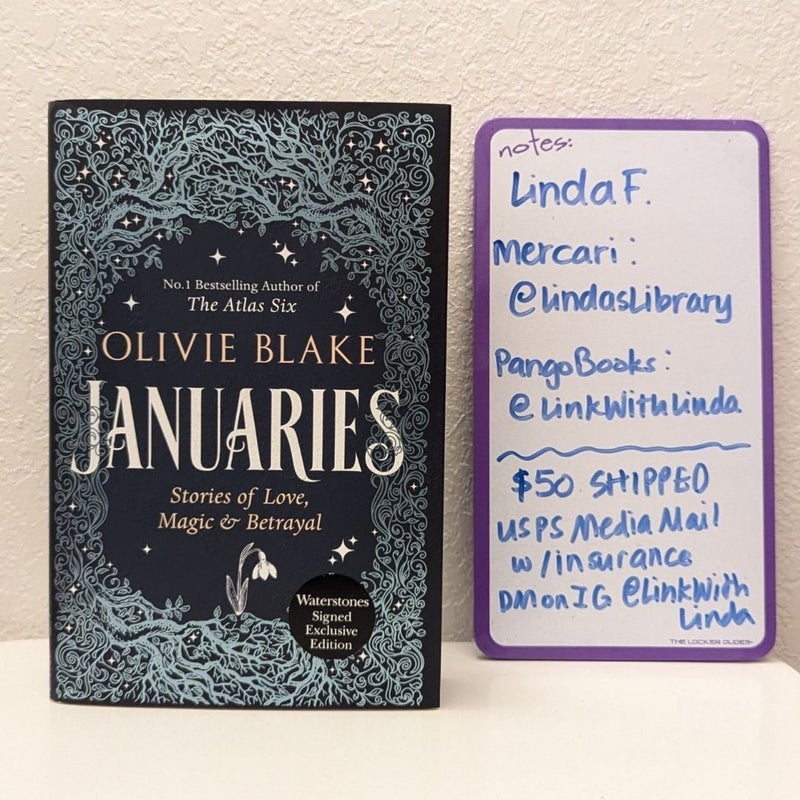 No.1 Bestselling Author of
The Atlas Six
OLIVIE BLAKE
JANUARIES
Stories of Love,
Magic & Betrayal
Waterstones
Signed
Exclusive
Edition
notes:
Linda F.
Mercari:
@lindasLibrary
PangoBooks:
@LinkWithLinda
$50 SHIPPED
USPS Media Mail
w/insurance
DM on IG @LinkWith
Linda
THE LOCKER DUDES